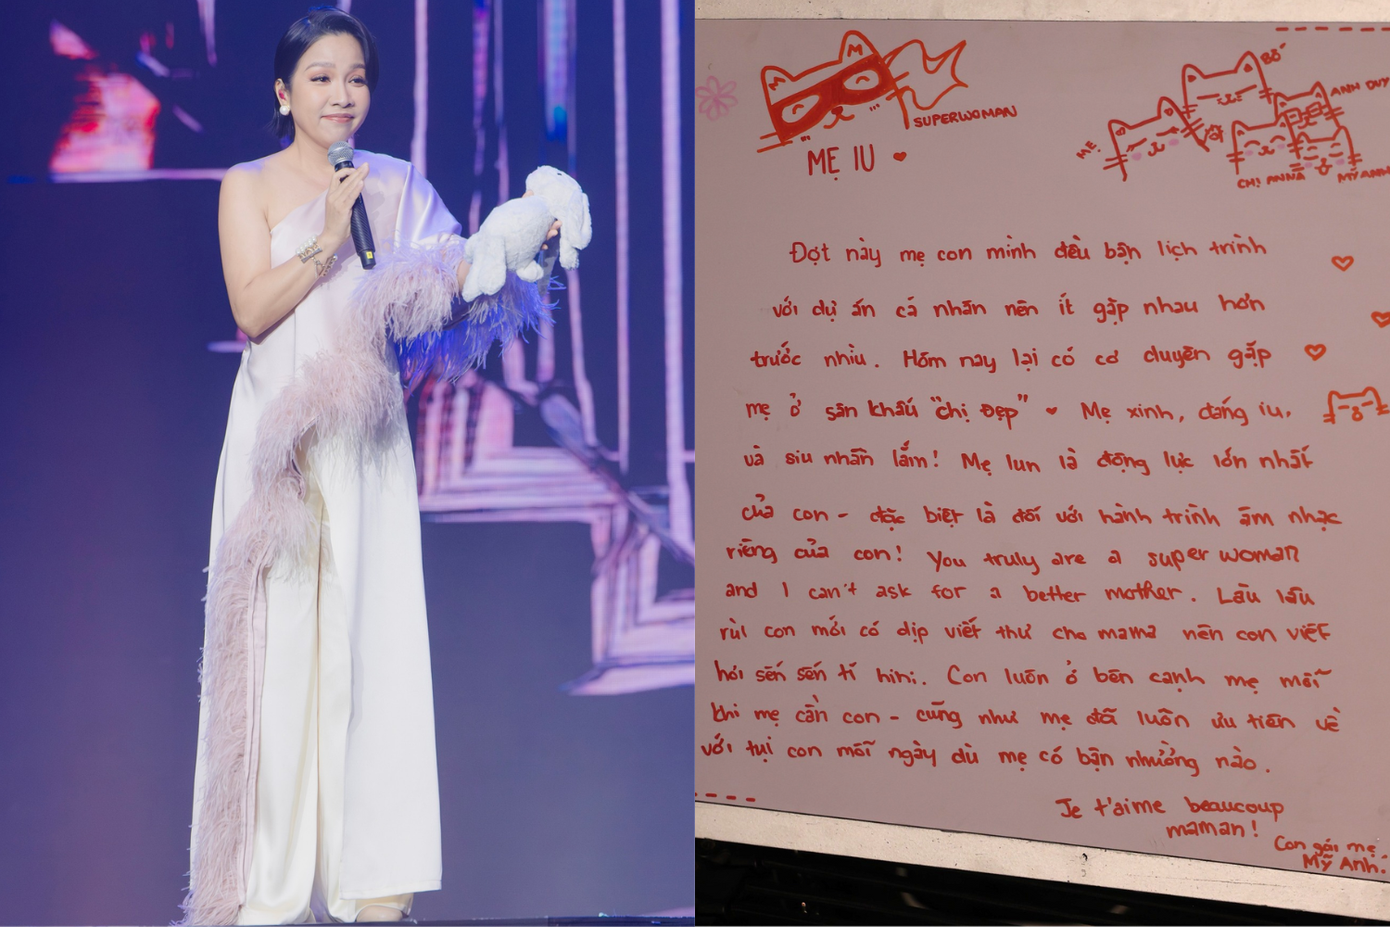 M
SUPERWOMAN
MẸ IU
BỐ
ANH DUY
MẸ
CHỊ ANNA
MỸ ANH
Đợt này mẹ con mình đều bận lịch trình
với dự án cá nhân nên ít gặp nhau hơn
trước nhìu. Hôm nay lại có cơ duyên gặp
mẹ ở sân khấu "chị Đẹp" ♥ Mẹ xinh, đáng iu,
và siu nhân lắm! Mẹ lun là động lực lớn nhất
của con - đặc biệt là đối với hành trình âm nhạc
riêng của con! You truly are a super woman
and I can't ask for a better mother. Lâu lâu
rùi con mới có dịp viết thư cho mama nên con viết
hơi sến sến tí hihi. Con luôn ở bên cạnh mẹ mỗi
khi mẹ cần con - cũng như mẹ đã luôn ưu tiên về
với tụi con mỗi ngày dù mẹ có bận nhường nào.
Je t'aime beaucoup
maman!
Con gái mẹ
Mỹ Anh.